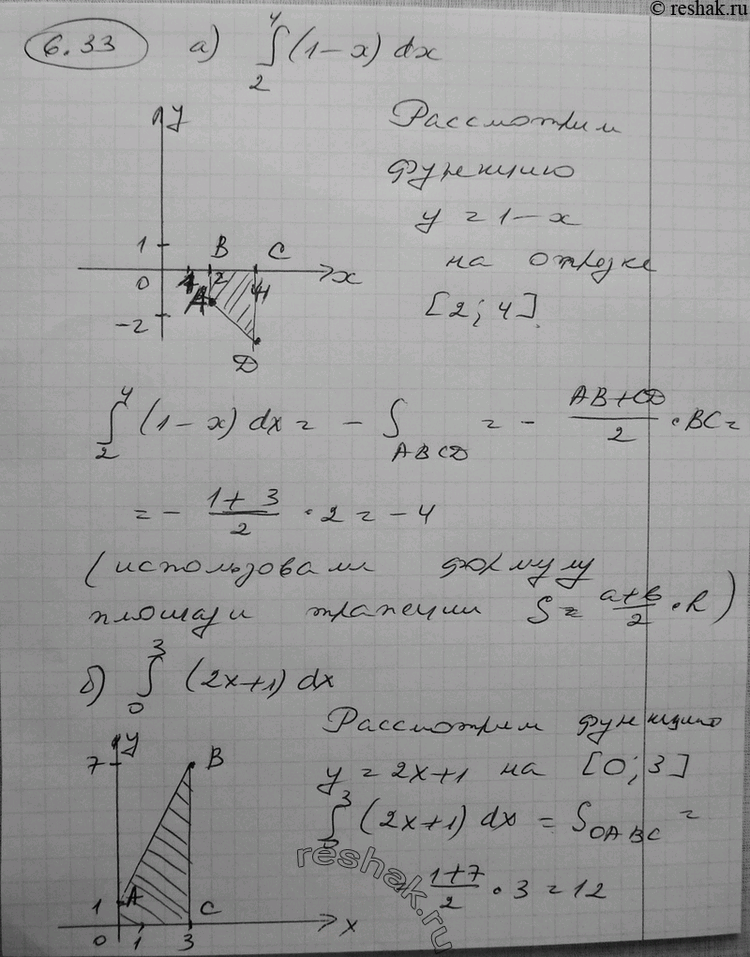 © reshak.ru
6.33 а) ∫₂⁴ (1-x) dx
y
Рассмотрим
функцию
y = 1-x
на отрезке
[2; 4].
1 B C
0 1 2 4 x
A
-2
D
∫₂⁴ (1-x) dx = - S_ABCD = - (AB+CD)/2 · BC =
= - (1+3)/2 · 2 = -4
(использовали формулу
площади трапеции S = (a+b)/2 · h)
б) ∫₀³ (2x+1) dx
Рассмотрим функцию
y = 2x+1 на [0; 3]
∫₀³ (2x+1) dx = S_OABC =
(1+7)/2 · 3 = 12
y
7 B
1 A C
0 1 3 x
reshak.ru